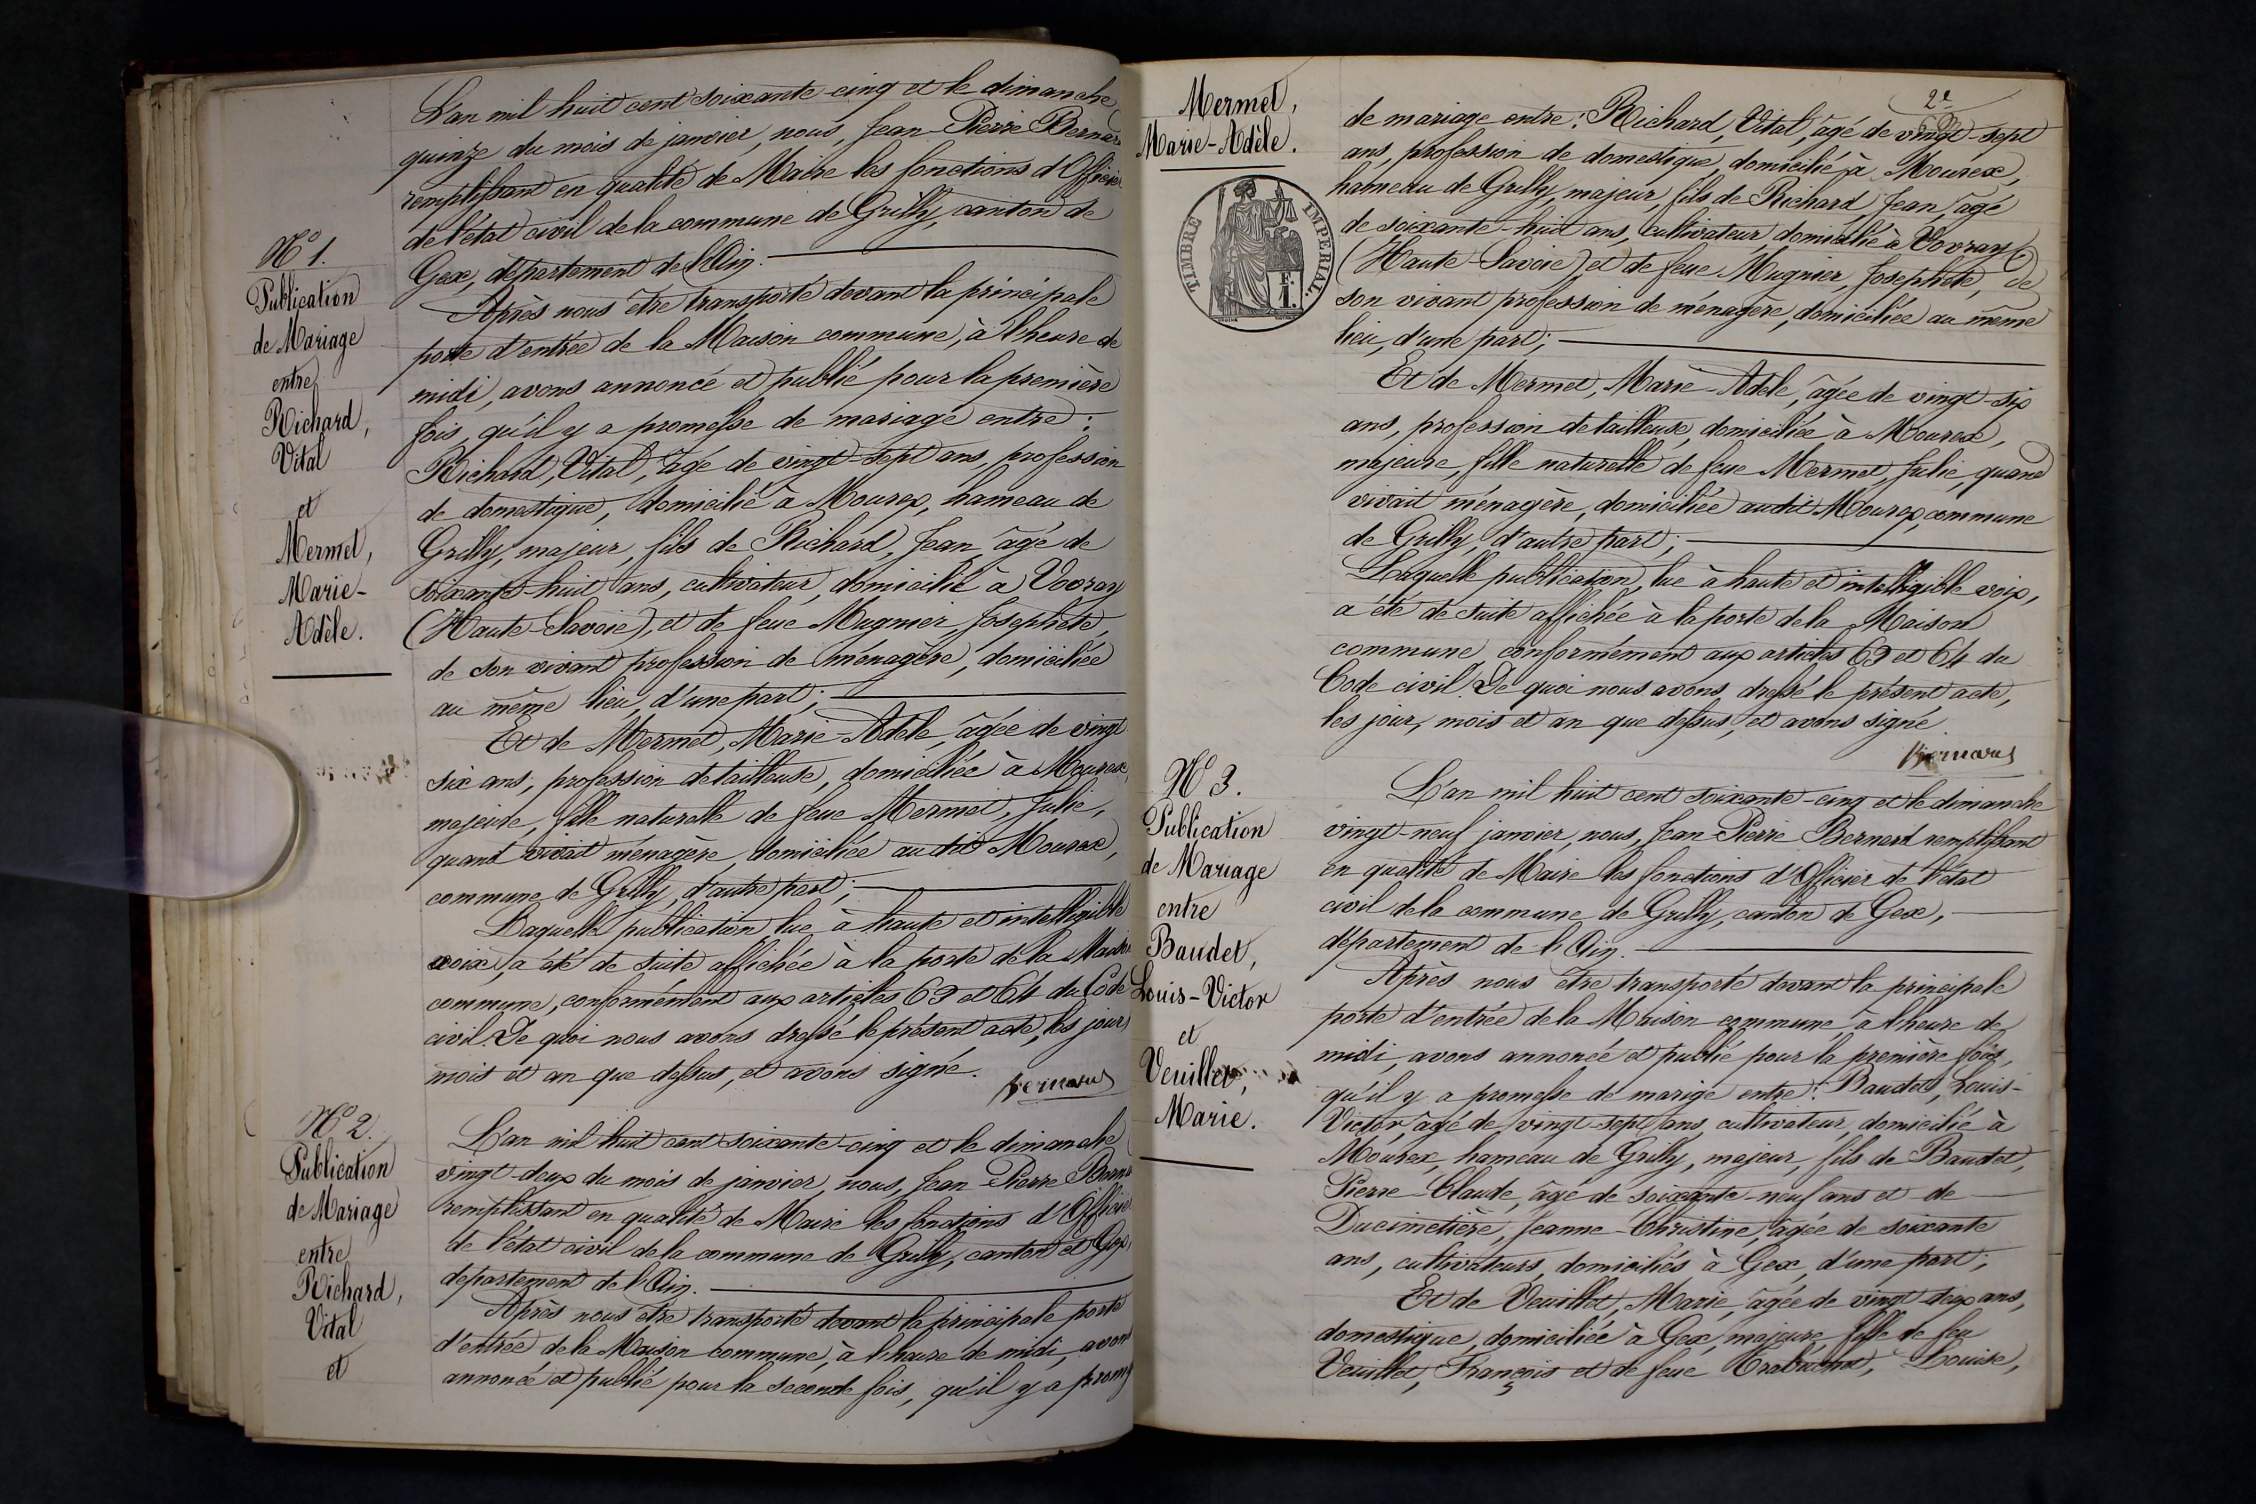 N° 1.
Publication
de Mariage
entre
Richard,
Vital
et
Mermet,
Marie-
Adèle.
L'an mil huit cent soixante-cinq et le dimanche
quinze du mois de janvier, nous, Jean-Pierre Bernard
remplissant en qualité de Maire les fonctions d'Officier
de l'état civil de la commune de Grilly, canton de
Gex, département de l'Ain.
Après nous être transporté devant la principale
porte d'entrée de la Maison commune, à l'heure de
midi, avons annoncé et publié pour la première
fois, qu'il y a promesse de mariage entre :
Richard, Vital, âgé de vingt-sept ans, profession
de domestique, domicilié à Mourex, hameau de
Grilly, majeur, fils de Richard, Jean, âgé de
soixante-huit ans, cultivateur, domicilié à Vovray
(Haute-Savoie), et de feue Mugnier, Josephte,
de son vivant profession de ménagère, domiciliée
au même lieu, d'une part ;
Et de Mermet, Marie-Adèle, âgée de vingt
six ans, profession de tailleuse, domiciliée à Mourex,
majeure, fille naturelle de feue Mermet, Julie,
quand vivait ménagère, domiciliée audit Mourex,
commune de Grilly, d'autre part ;
Laquelle publication lue à haute et intelligible
voix, a été de suite affichée à la porte de la Maison
commune, conformément aux articles 63 et 64 du Code
civil. De quoi nous avons dressé le présent acte, les jour,
mois et an que dessus, et avons signé.
Bernard
N° 2.
Publication
de Mariage
entre
Richard,
Vital
et
L'an mil huit cent soixante-cinq et le dimanche
vingt-deux du mois de janvier, nous, Jean-Pierre Berna
remplissant en qualité de Maire les fonctions d'Officier
de l'état civil de la commune de Grilly, canton et Gex,
département de l'Ain.
Après nous être transporté devant la principale porte
d'entrée de la Maison commune, à l'heure de midi, avons
annoncé et publié pour la seconde fois, qu'il y a prome
Mermet,
Marie-Adèle.
TIMBRE IMPERIAL
F.
1.
2e
de mariage entre : Richard, Vital, âgé de vingt-sept
ans, profession de domestique, domicilié à Mourex,
hameau de Grilly, majeur, fils de Richard, Jean, âgé
de soixante-huit ans, cultivateur, domicilié à Vovray
(Haute-Savoie) et de feue Mugnier, Josephte, de
son vivant profession de ménagère, domiciliée au même
lieu, d'une part ;
Et de Mermet, Marie-Adèle, âgée de vingt-six
ans, profession de tailleuse, domiciliée à Mourex,
majeure, fille naturelle de feue Mermet, Julie, quand
vivait ménagère, domiciliée audit Mourex, commune
de Grilly, d'autre part ;
Laquelle publication, lue à haute et intelligible voix,
a été de suite affichée à la porte de la Maison
commune conformément aux articles 63 et 64 du
Code civil. De quoi nous avons dressé le présent acte,
les jour, mois et an que dessus, et avons signé
Bernard
N° 3.
Publication
de Mariage
entre
Baudet,
Louis-Victor
et
Veuillet,
Marie.
L'an mil huit cent soixante-cinq et le dimanche
vingt-neuf janvier, nous, Jean-Pierre Bernard remplissant
en qualité de Maire les fonctions d'Officier de l'état
civil de la commune de Grilly, canton de Gex,
département de l'Ain.
Après nous être transporté devant la principale
porte d'entrée de la Maison commune à l'heure de
midi, avons annoncé et publié pour la première fois,
qu'il y a promesse de marige entre : Baudet, Louis-
Victor, âgé de vingt-sept ans, cultivateur, domicilié à
Mourex, hameau de Grilly, majeur, fils de Baudet,
Pierre-Claude, âgé de soixante-neuf ans et de
Ducimetière, Jeanne-Christine, âgée de soixante
ans, cultivateurs, domiciliés à Gex, d'une part ;
Et de Veuillet, Marie, âgée de vingt-deux ans,
domestique, domiciliée à Gex, majeure, fille de feu
Veuillet, François et de feue Louise,